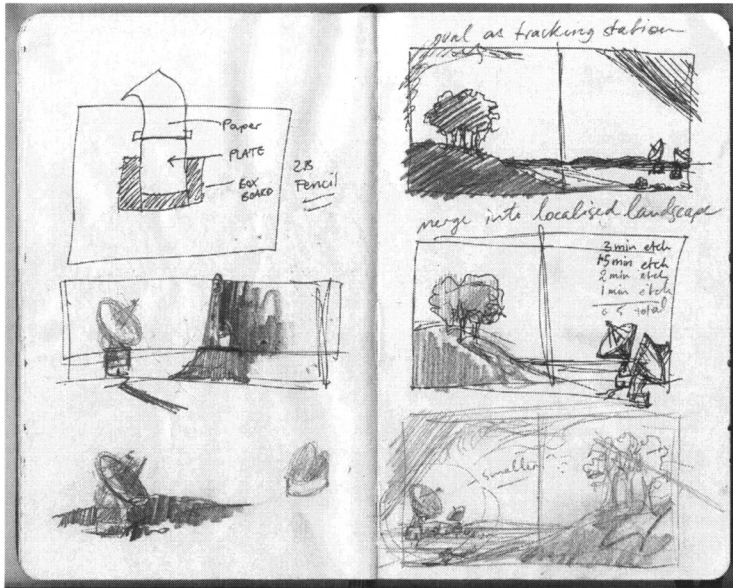 Paper
PLATE
BOX
BOARD
2B
Pencil
oval as tracking station
merge into localised landscape
3 min etch
1.5 min etch
2 min etch
1 min etch
total
smaller